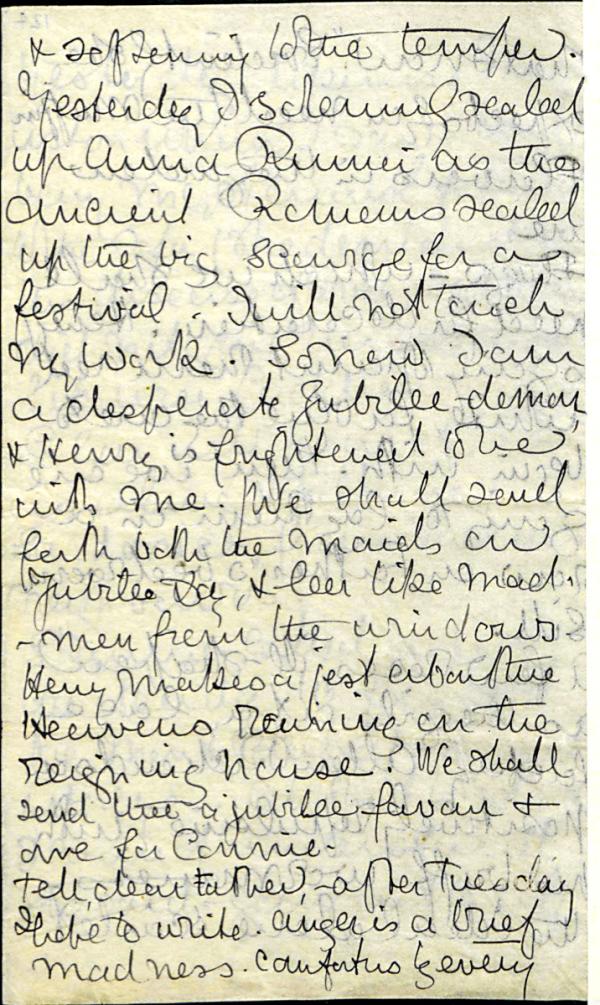 & softening to the temper.
Yesterday I solemnly sealed
up Anna Ruina as the
ancient Romans sealed
up the big scourge for a
festival. I will not touch
my work. So now I am
a desperate Jubilee-demon,
& Henry is frightened to be
with me. We shall send
forth both the maids on
Jubilee Day, & leer like mad-
-men from the windows
Henry makes a jest about the
Heavens raining on the
reigning house. We shall
send thee a jubilee favour &
one for Connie-
tell, dear Father, -after Tuesday
I hope to write. anger is a brief
madness. Comfort us by every